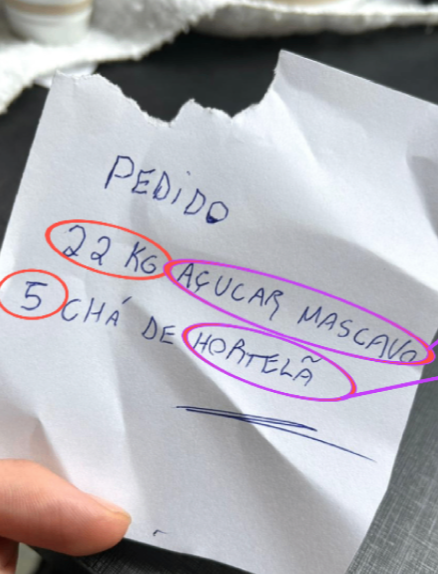 PEDIDO
22 KG AÇUCAR MASCAVO
5 CHÁ DE HORTELÃ